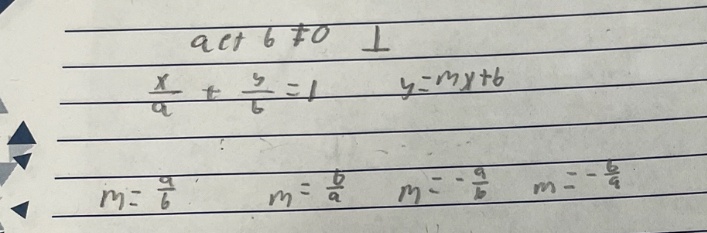 a et b ≠ 0 ⊥
x/a + y/b = 1 y=mx+b
m = a/b m = b/a m = -a/b m = -b/a